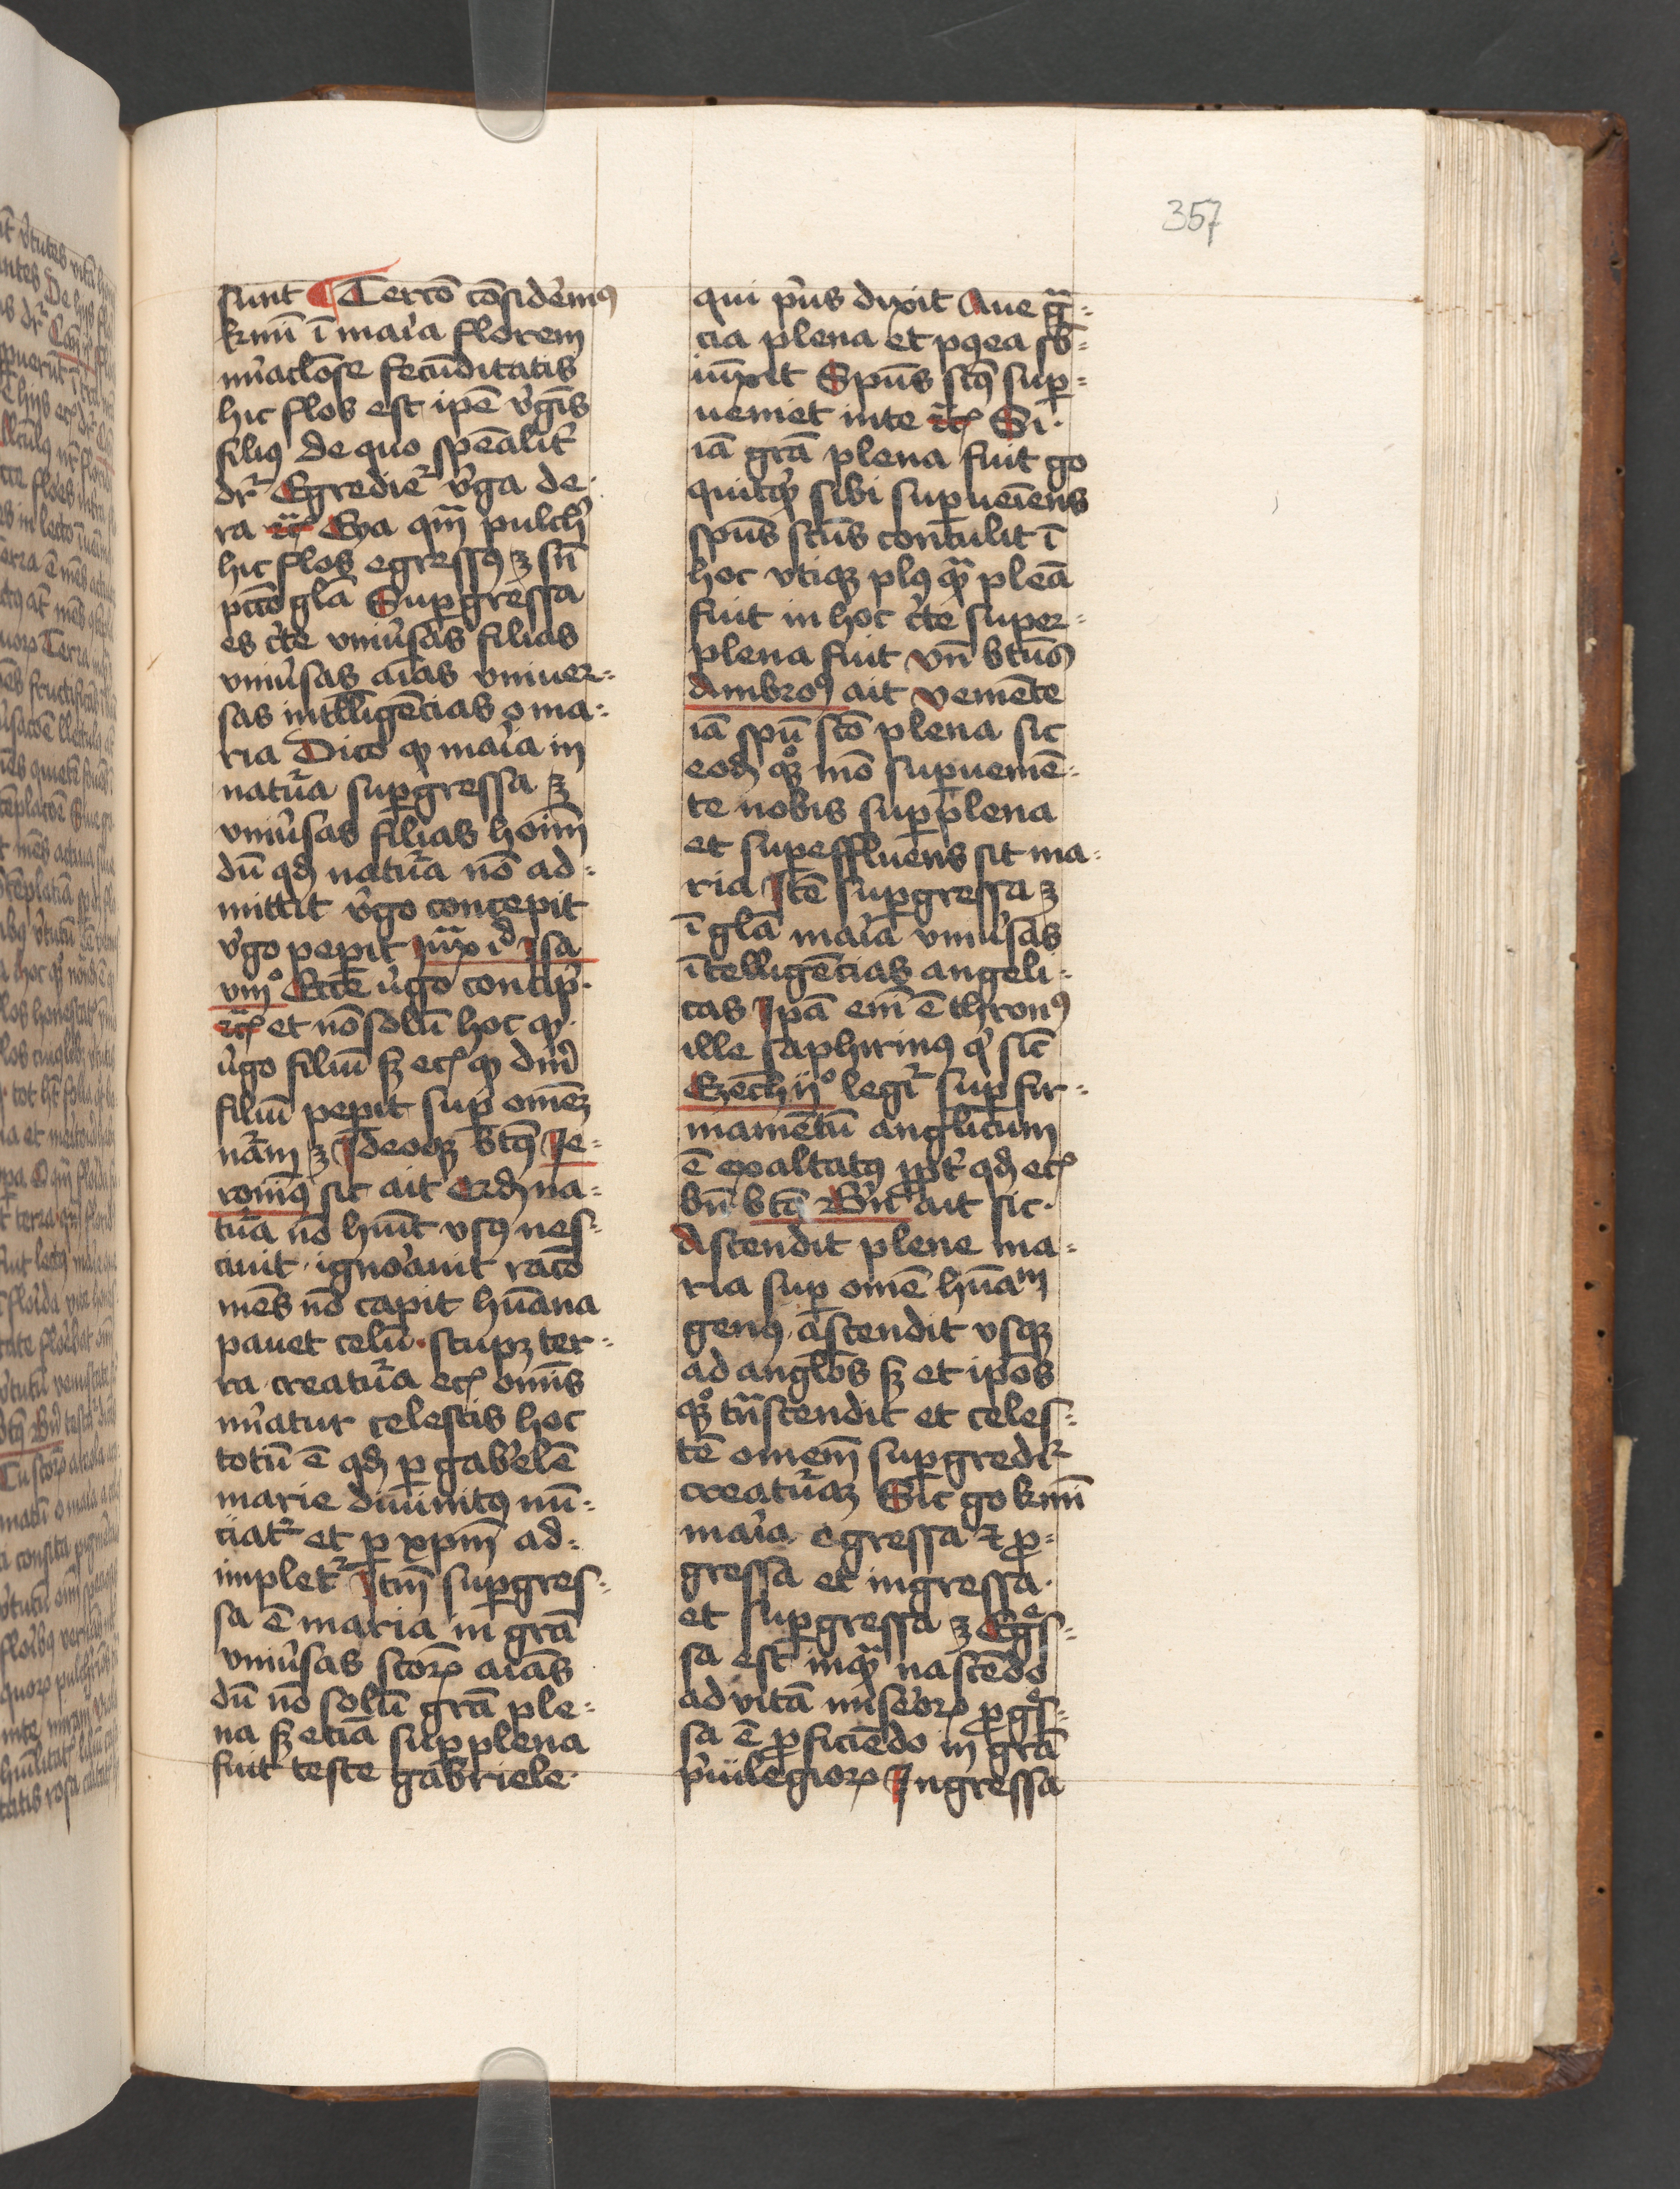 357
sunt ¶ Tercō cōsidem᷒ꝰ
kmī ī maīa florem
mīaclōse fecūditatis
hic flos est ipē vͥgīs
filiꝰ de quo spēalit᷑
dr᷑ Egredie᷑ vͥga de
ra ⁊c̄ Eya qm̄ pulch᷑
hic flos egressꝰ ⁊ sn̄
pctō glā Supgressa
es c᷑te vniūsas filias
vniūsas aīas vniuer⸗
sas intlligēcias o ma⸗
ria Dico ꝙ maīa in
natūa supgressa ⁊
vniūsas filias hoīm
dū qđ natūa nō ad⸗
mittit vͥgo concepit
vͥgo peꝑit iuxͣ id Isa
viiº Ecce vͥgo concip᷑
⁊c̄ et nō solū hoc ꝙ
vͥgo filiū sꝫ ecꝫ ꝙ dīn᷑
filiū peꝑit sup omēꝫ
nām ⁊ Ideoqꝫ btꝰ Ie⸗
ronīꝰ sic ait Qđ na⸗
tūa nō hūit vsꝰ nes⸗
ciuit · ignoāuit racō
mēs nō capit hūana
pauet celū · stupꝫ ter⸗
ra creatūa ecꝫ omīs
mīatur celestis hoc
totū ē qđ ꝑ gabͥelē
marie diuinitꝰ nū⸗
ciat᷑ et ꝑ xpm̄ ad⸗
implet᷑ Itm̄ supgres⸗
sa ē maria in grā
vniūsas scoꝝ aīas
dū nō solū grā ple⸗
na sꝫ etiā supplena
fuit teste gabriele
qui pͥus dixit Aue gͣ⸗
cia plena et pꝰea sb̄⸗
iūxit Spūs sctꝰ sup⸗
ueniet in te ⁊c̄ Si
iā grā plena fuit go
quitqͥꝫ sibi supueīens
spūs scūs contulit ī
hoc vtiqꝫ plꝰ qͣꝫ pleā
fuit in hoc c᷑te super⸗
plena fuit vn̄ btūs
Ambroꝰ ait veniēte
iā spū scō plena sic
eodꝫ qꝫº mō supueniē⸗
te nobis supplena
et supeffluens sit ma⸗
ria Itē supgressa ⁊
ī glā maīa vniūsas
ītelligēcias angeli⸗
cas Ipā em̄ ē thronꝰ
ille saphirinꝰ qͥ sīc
Ezech iiº legit᷑ sup fir⸗
mamētū anglicum
ē exaltatꝰ ꝓpt᷑ qđ ecꝫ
bn̄ btꝰ Bn᷑ ait sic ·
Ascendit plene ma⸗
ria sup omē hūaᵐ
genꝰ · ascendit vsqꝫ
ad anglos sꝫ et ipōs
qꝫº tn̄scendit et celes⸗
tē omem̄ supgredit᷑
creatūaꝫ Sic go kmī
maīa egressa ⁊ ꝓ⸗
gressa et ingressa ·
et supgressa ⁊ Egͤs⸗
sa est inqͣꝫ nascēdo
ad vitā miseōꝝ ꝓgͤs⸗
sa ē ꝓficiēdo in grā
pͥuilegioꝝ Ingressa